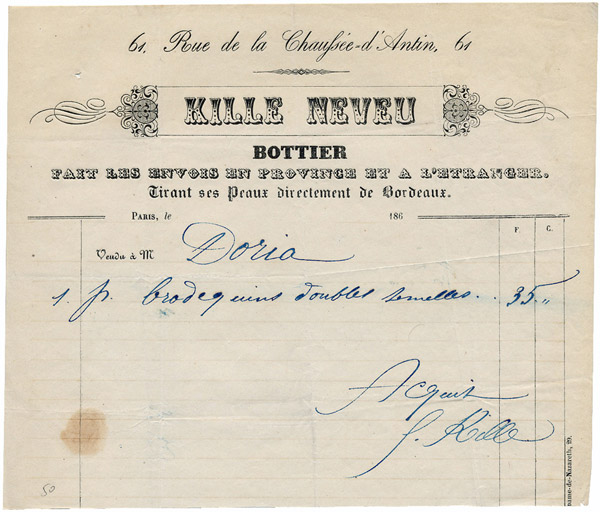 61, Rue de la Chaussée-d'Antin, 61
KILLE NEVEU
BOTTIER
FAIT LES ENVOIS EN PROVINCE ET A L'ETRANGER.
Tirant ses Peaux directement de Bordeaux.
PARIS, le 186
F. C.
Vendu à M Doria
1 p. brodequins doubles semelles.. 35 "
Acquit
f. Kille
ame-de-Nazareth, 29.
50